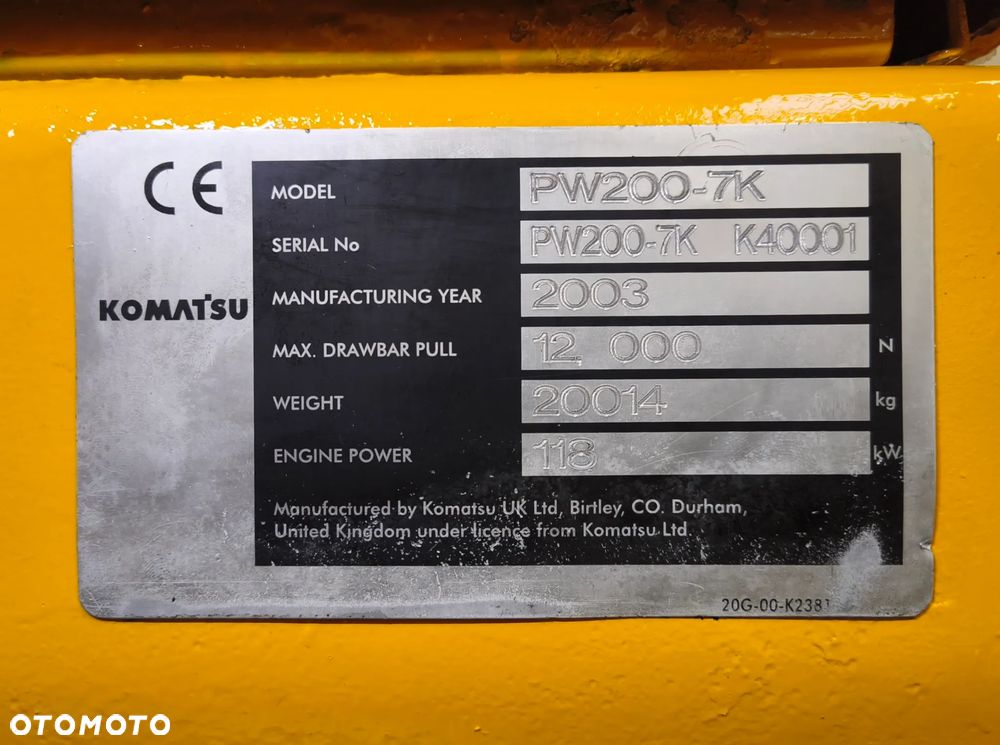 CE
KOMATSU
MODEL PW200-7K
SERIAL No PW200-7K K40001
MANUFACTURING YEAR 2003
MAX. DRAWBAR PULL 12, 000 N
WEIGHT 20014 kg
ENGINE POWER 118 kW
Manufactured by Komatsu UK Ltd, Birtley, CO. Durham,
United Kingdom under licence from Komatsu Ltd.
20G-00-K2381
OTOMOTO